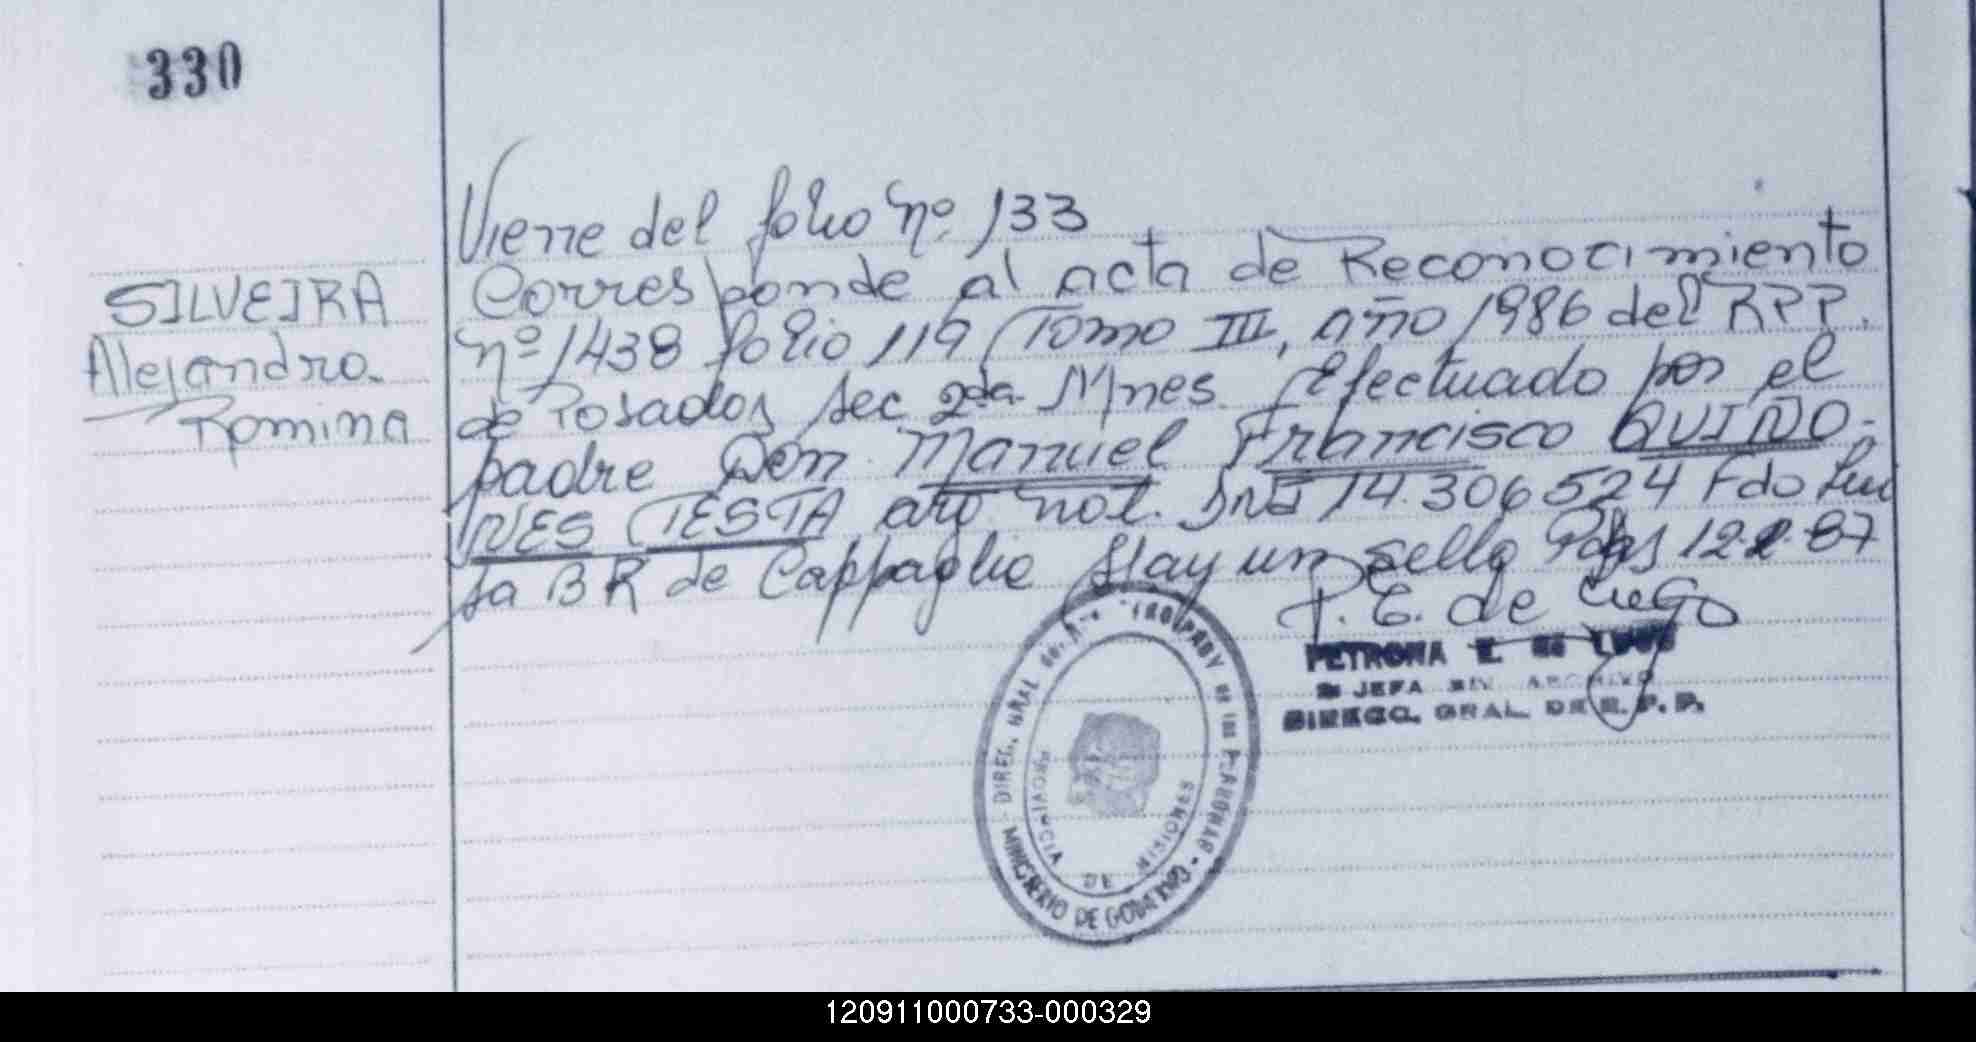 330
SILVEIRA
Alejandra
Romina
Viene del folio nº 133
Corresponde al acta de Reconocimiento
nº 1438 folio 119 Tomo III, año 1986 del RPP.
de Posadas sec 2da Mnes. Efectuado por el
padre Don Manuel Francisco QUIÑO-
NES TESTA arg nat. DNI 14.306524 Fdo
sa B R de Cappaglio Hay un sello Pdas 12.2.87
P. E. de Lugo
PETRONA E. de LUGO
JEFA DIV. ARCHIVO
DIRECC. GRAL. DE R. P. P.
PROVINCIA DE MISIONES
MINISTERIO DE GOBIERNO - DIREC. GRAL. de las PERSONAS
120911000733-000329